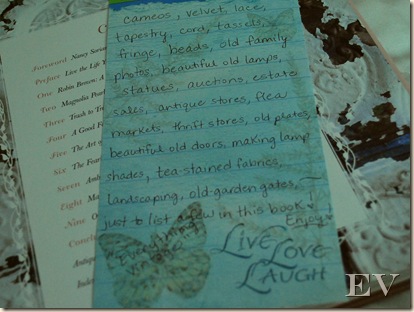 cameos, velvet, lace,
tapestry, cord, tassels,
fringe, beads, old family
photos, beautiful old lamps,
statues, auctions, estate
sales, antique stores, flea
markets, thrift stores, old plates,
beautiful old doors, making lamp
shades, tea-stained fabrics,
landscaping, old garden gates,
just to list a few in this book!
Enjoy
"Everything
vintage"
LIVE LOVE
LAUGH
Foreword Nancy
Preface Live the Life
One Robin Brown: A
Two Magnolia Pearl
Three Trash to
Four A Good
Five The Art of
Six The
Seven
Eight
Nine
EV